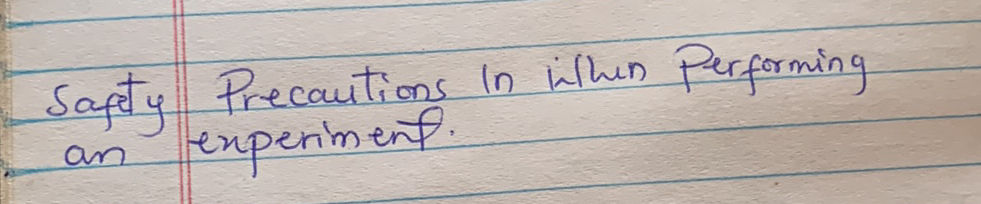 Safety Precautions In when Performing
an experiment.